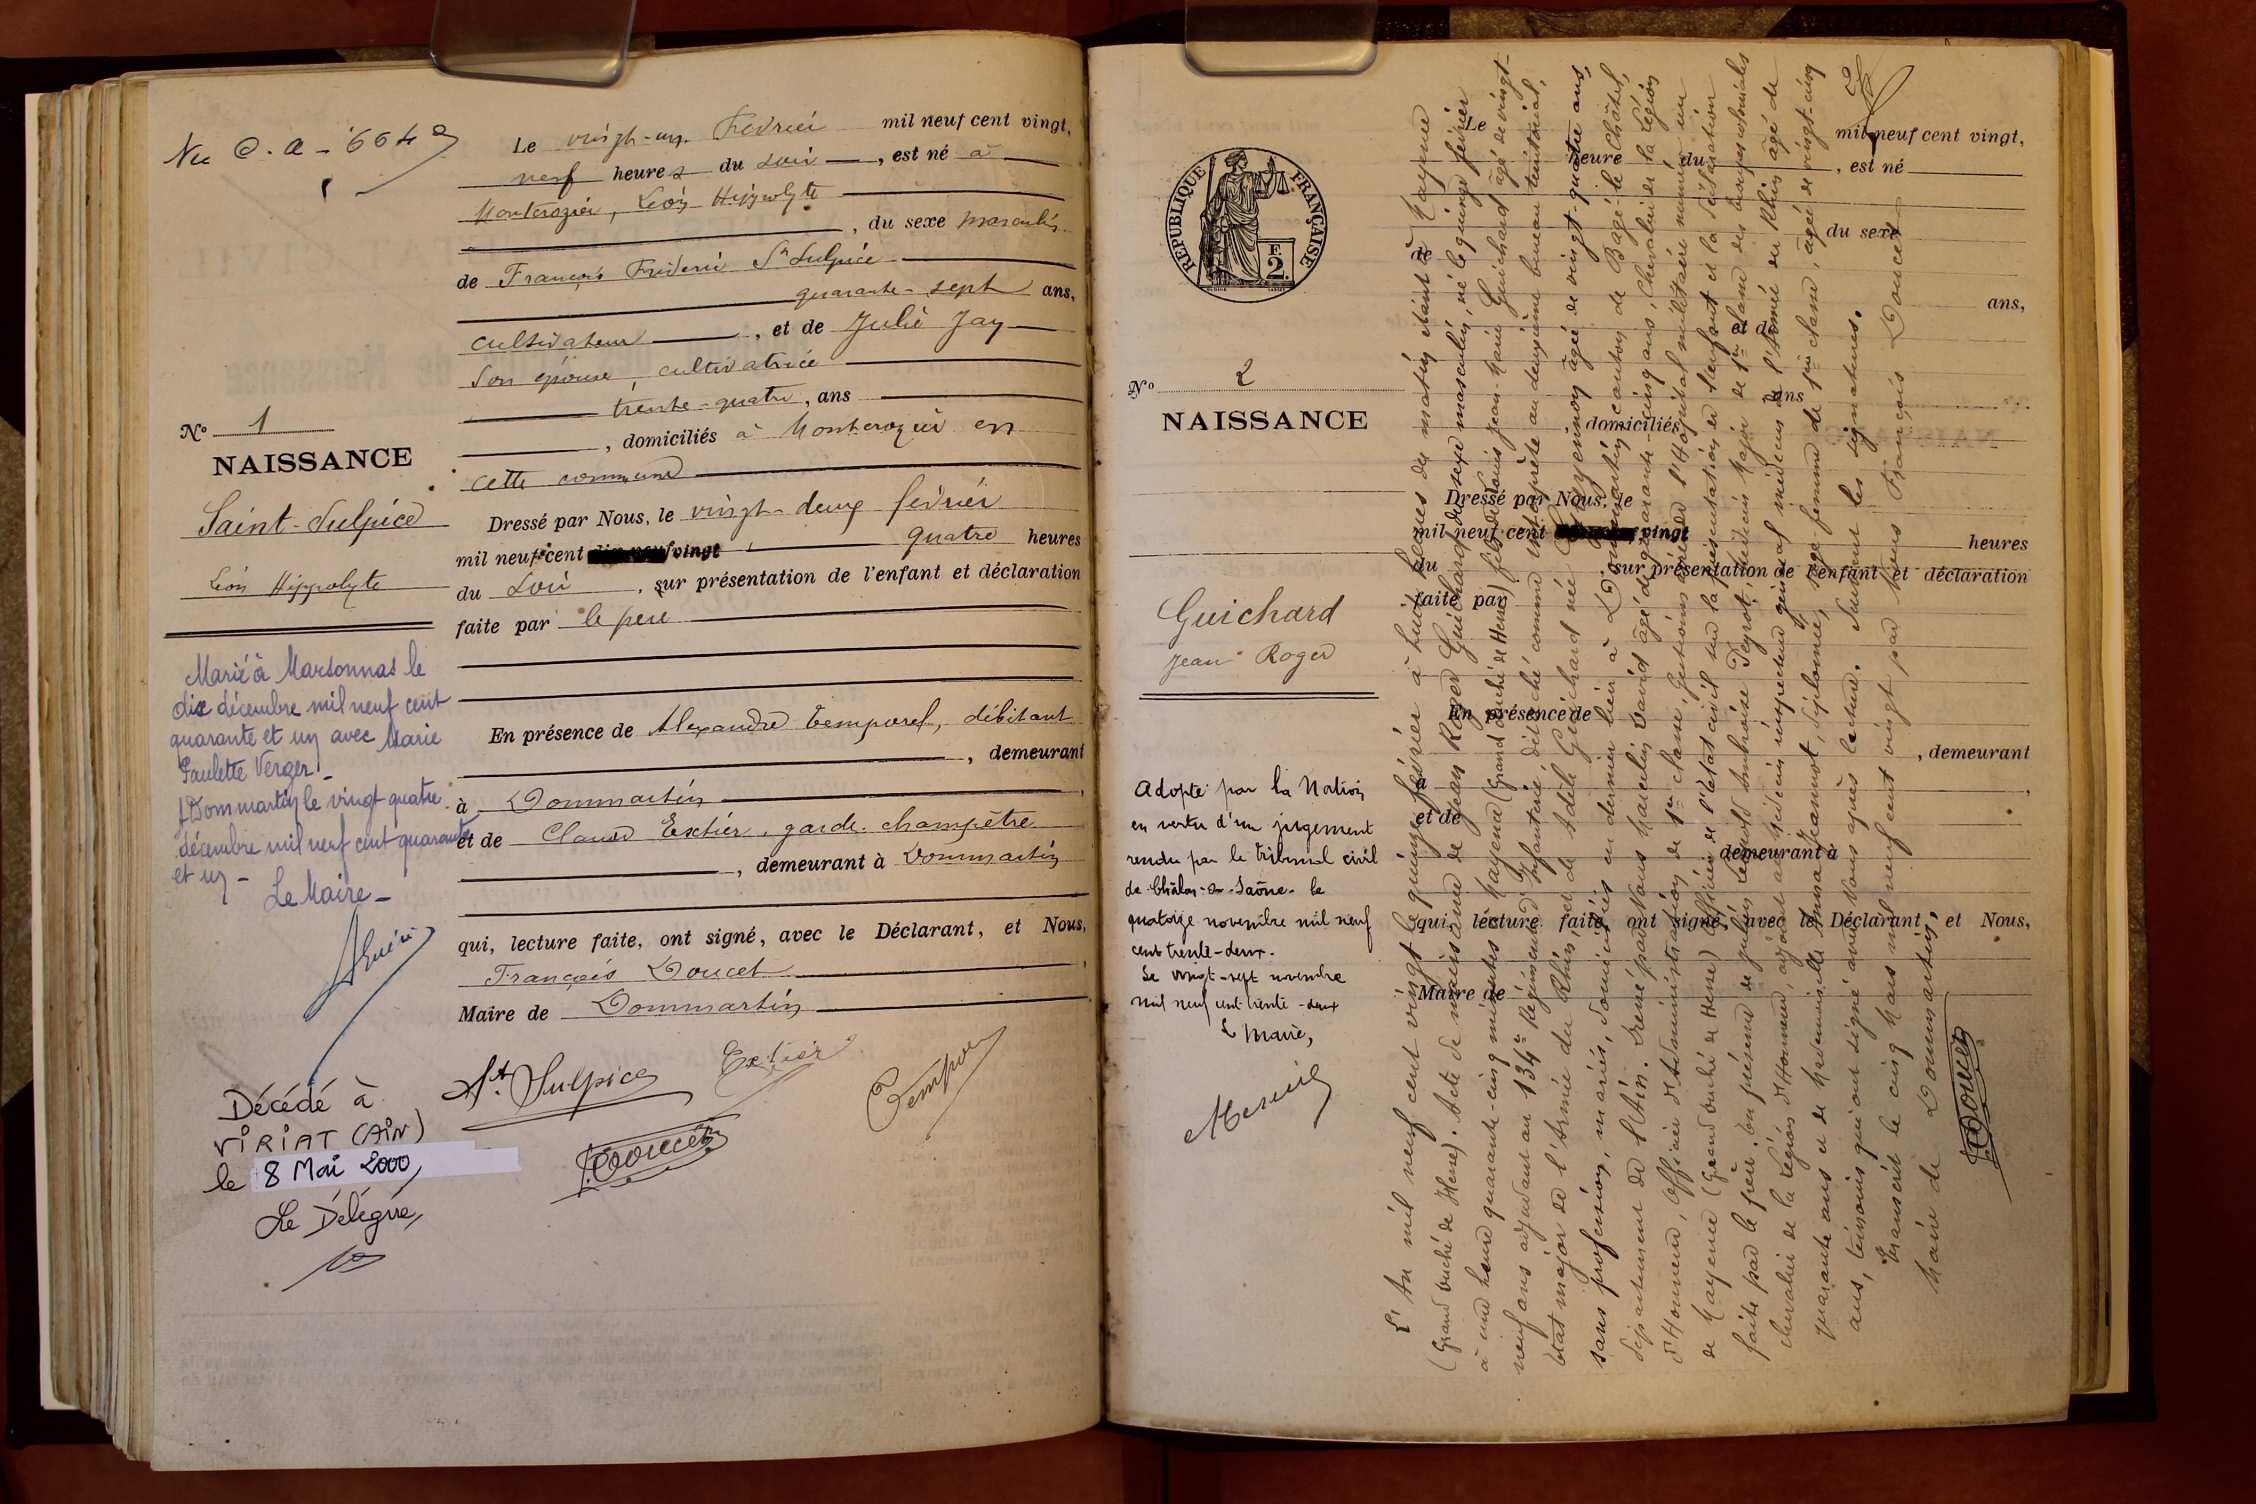 Le vingt-un Février mil neuf cent vingt,
neuf heures du soir, est né à
Monterozier, Léon Hippolyte
, du sexe masculin
de François Frédéric St Sulpice
quarante-sept ans,
cultivateur, et de Julie Jay
son épouse, cultivatrice
trente-quatre, ans
, domiciliés à Monterozier en
cette commune
Dressé par Nous, le vingt-deux février
mil neuf cent vingt quatre heures
du soir, sur présentation de l'enfant et déclaration
faite par le père
En présence de Alexandre Temporel, débitant
, demeurant
à Dommartin,
et de Claude Extier, garde-champêtre
, demeurant à Dommartin
qui, lecture faite, ont signé, avec le Déclarant, et Nous,
François Doucet,
Maire de Dommartin
St. Sulpice Extier
Temporel
Doucet
Nº 1
NAISSANCE
Saint-Sulpice
Léon Hippolyte
Marié à Marsonnas le
dix décembre mil neuf cent
quarante et un avec Marie
Paulette Verger.
Dommartin le vingt quatre
décembre mil neuf cent quarante
et un -
Le Maire -
Décédé à
VIRIAT (AIN)
le 8 Mai 2000,
Le Délégué,
RÉPUBLIQUE FRANÇAISE
2F.
Nº 2
NAISSANCE
Guichard
Jean Roger
Adopté par la Nation
en vertu d'un jugement
rendu par le tribunal civil
de Châlon-s-Saône- le
quatorze novembre mil neuf
cent trente-deux.
Le vingt-sept novembre
mil neuf cent trente-deux
Le Maire,
Le
mil neuf cent vingt,
heure du , est né
du sexe
de
ans,
et de
ans
domiciliés
Dressé par Nous, le
mil neuf cent vingt heures
du sur présentation de l'enfant et déclaration
faite par
En présence de
, demeurant
à
et de
demeurant à
qui, lecture faite, ont signé, avec le Déclarant, et Nous,
Maire de
L'An mil neuf cent vingt le quinze février à huit heures du matin étant à Mayence
(Grand Duché de Hesse). Acte de naissance de Jean Roger Guichard du sexe masculin, né le quinze février
à une heure quarante-cinq minutes à Mayence (Grand Duché de Hesse) fils de Louis Jean-Marie Guichard âgé de vingt-
neuf ans adjudant au 134e Régiment d'Infanterie détaché comme interprète au deuxième bureau territorial,
état major de l'Armée du Rhin et de Adèle Guichard née âgée de vingt-quatre ans,
sans profession, mariés, domiciliés en dernier lieu à Dommartin canton de Bagé-le-Châtel,
département de l'Ain. Dressé par Nous Marcelin David âgé de quarante-cinq ans, Chevalier de la Légion
d'Honneur, Officier d'Administration de 1re classe, Gestionnaire de l'Hôpital militaire numéro un
de Mayence (Grand Duché de Hesse) Officier de l'état civil sur la présentation de l'enfant et la déclaration
faite par le père. En présence de Julien Léopold Ambroise Peyrot, Médecin Major de 1re classe des troupes coloniales
chevalier de la Légion d'Honneur, adjoint au Médecin inspecteur général médecin de l'Armée du Rhin âgé de
quarante ans et de Mademoiselle Anna Jeannot, diplomée, sage-femme de 1re classe, âgée de vingt-cinq
ans, témoins qui ont signé avec Nous après lecture. Suivent les signatures.
Transcrit le cinq Mars mil neuf cent vingt par Nous François Doucet
Maire de Dommartin,
Doucet